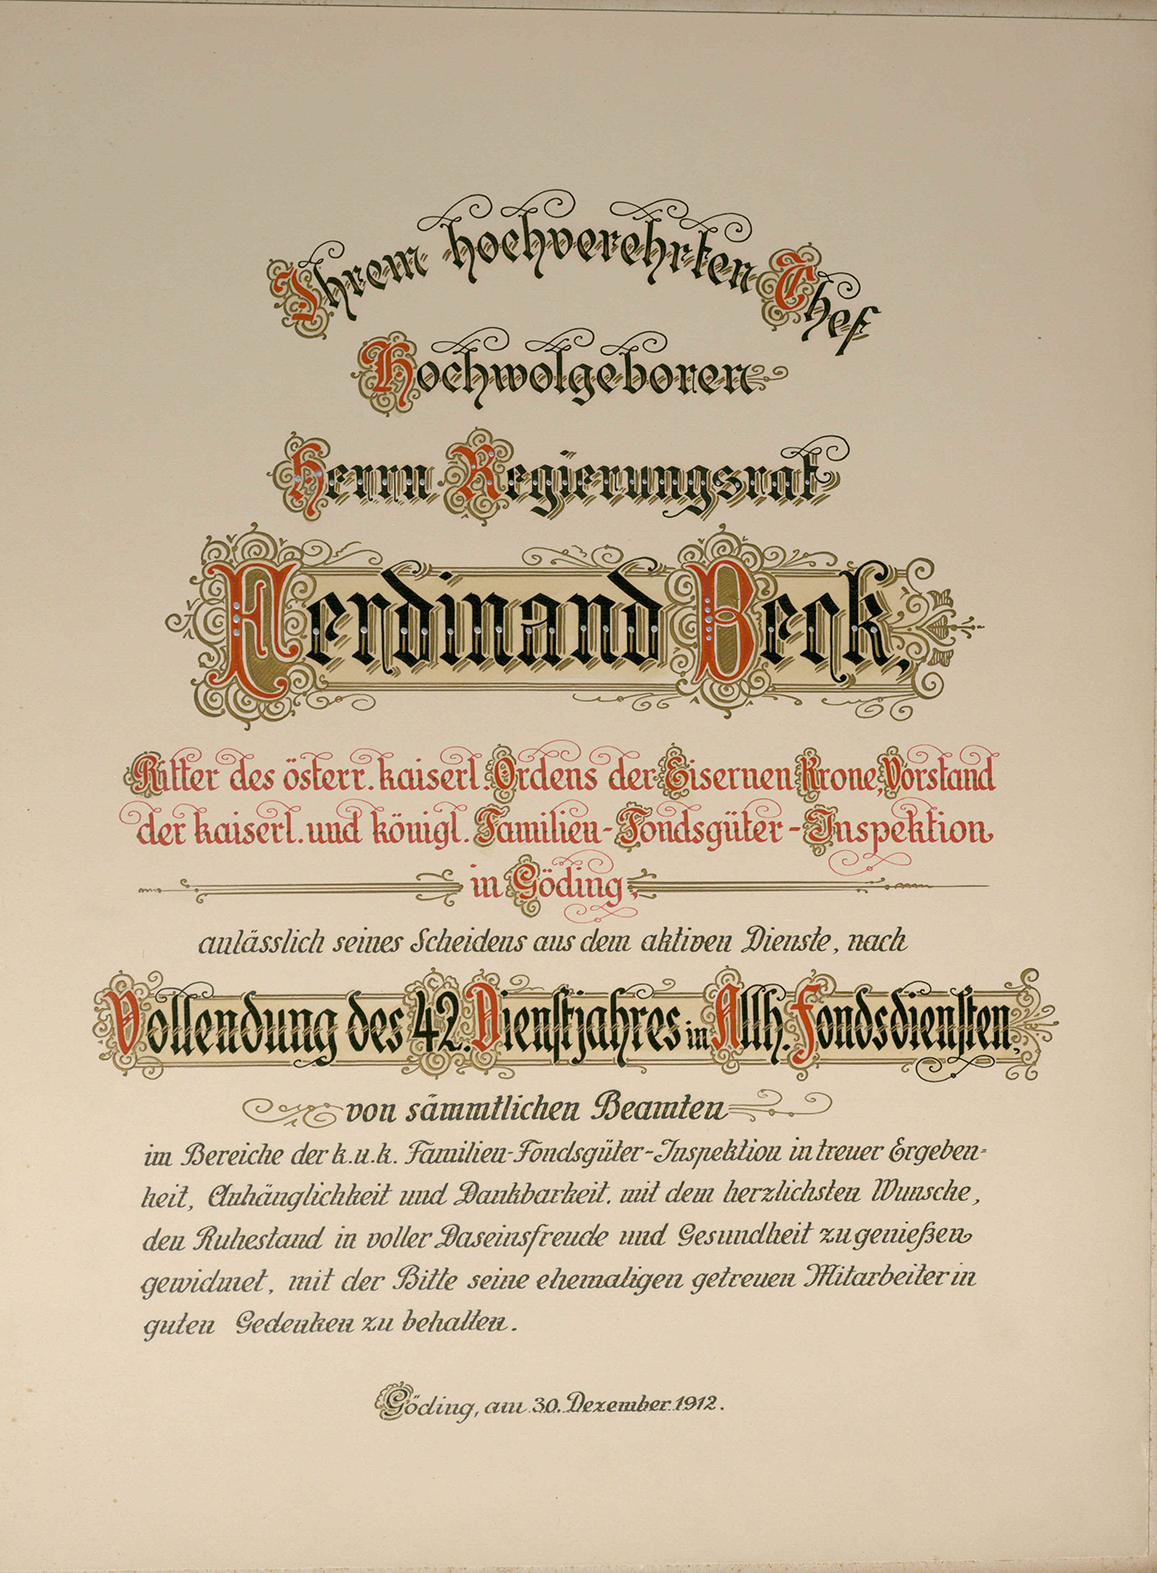 Ihrem hochverehrten Chef
Hochwolgeboren
Herrn Regierungsrat
Ferdinand Beck,
Ritter des österr. kaiserl. Ordens der Eisernen Krone, Vorstand
der kaiserl. und königl. Familien-Fondsgüter-Inspektion
in Göding,
anlässlich seines Scheidens aus dem aktiven Dienste, nach
Vollendung des 42. Dienstjahres in Allh. Fondsdiensten,
von sämmtlichen Beamten
im Bereiche der k. u. k. Familien-Fondsgüter-Inspektion in treuer Ergeben-
heit, Anhänglichkeit und Dankbarkeit, mit dem herzlichsten Wunsche,
den Ruhestand in voller Daseinsfreude und Gesundheit zu genießen
gewidmet, mit der Bitte seine ehemaligen getreuen Mitarbeiter in
guten Gedenken zu behalten.
Göding, am 30. Dezember 1912.